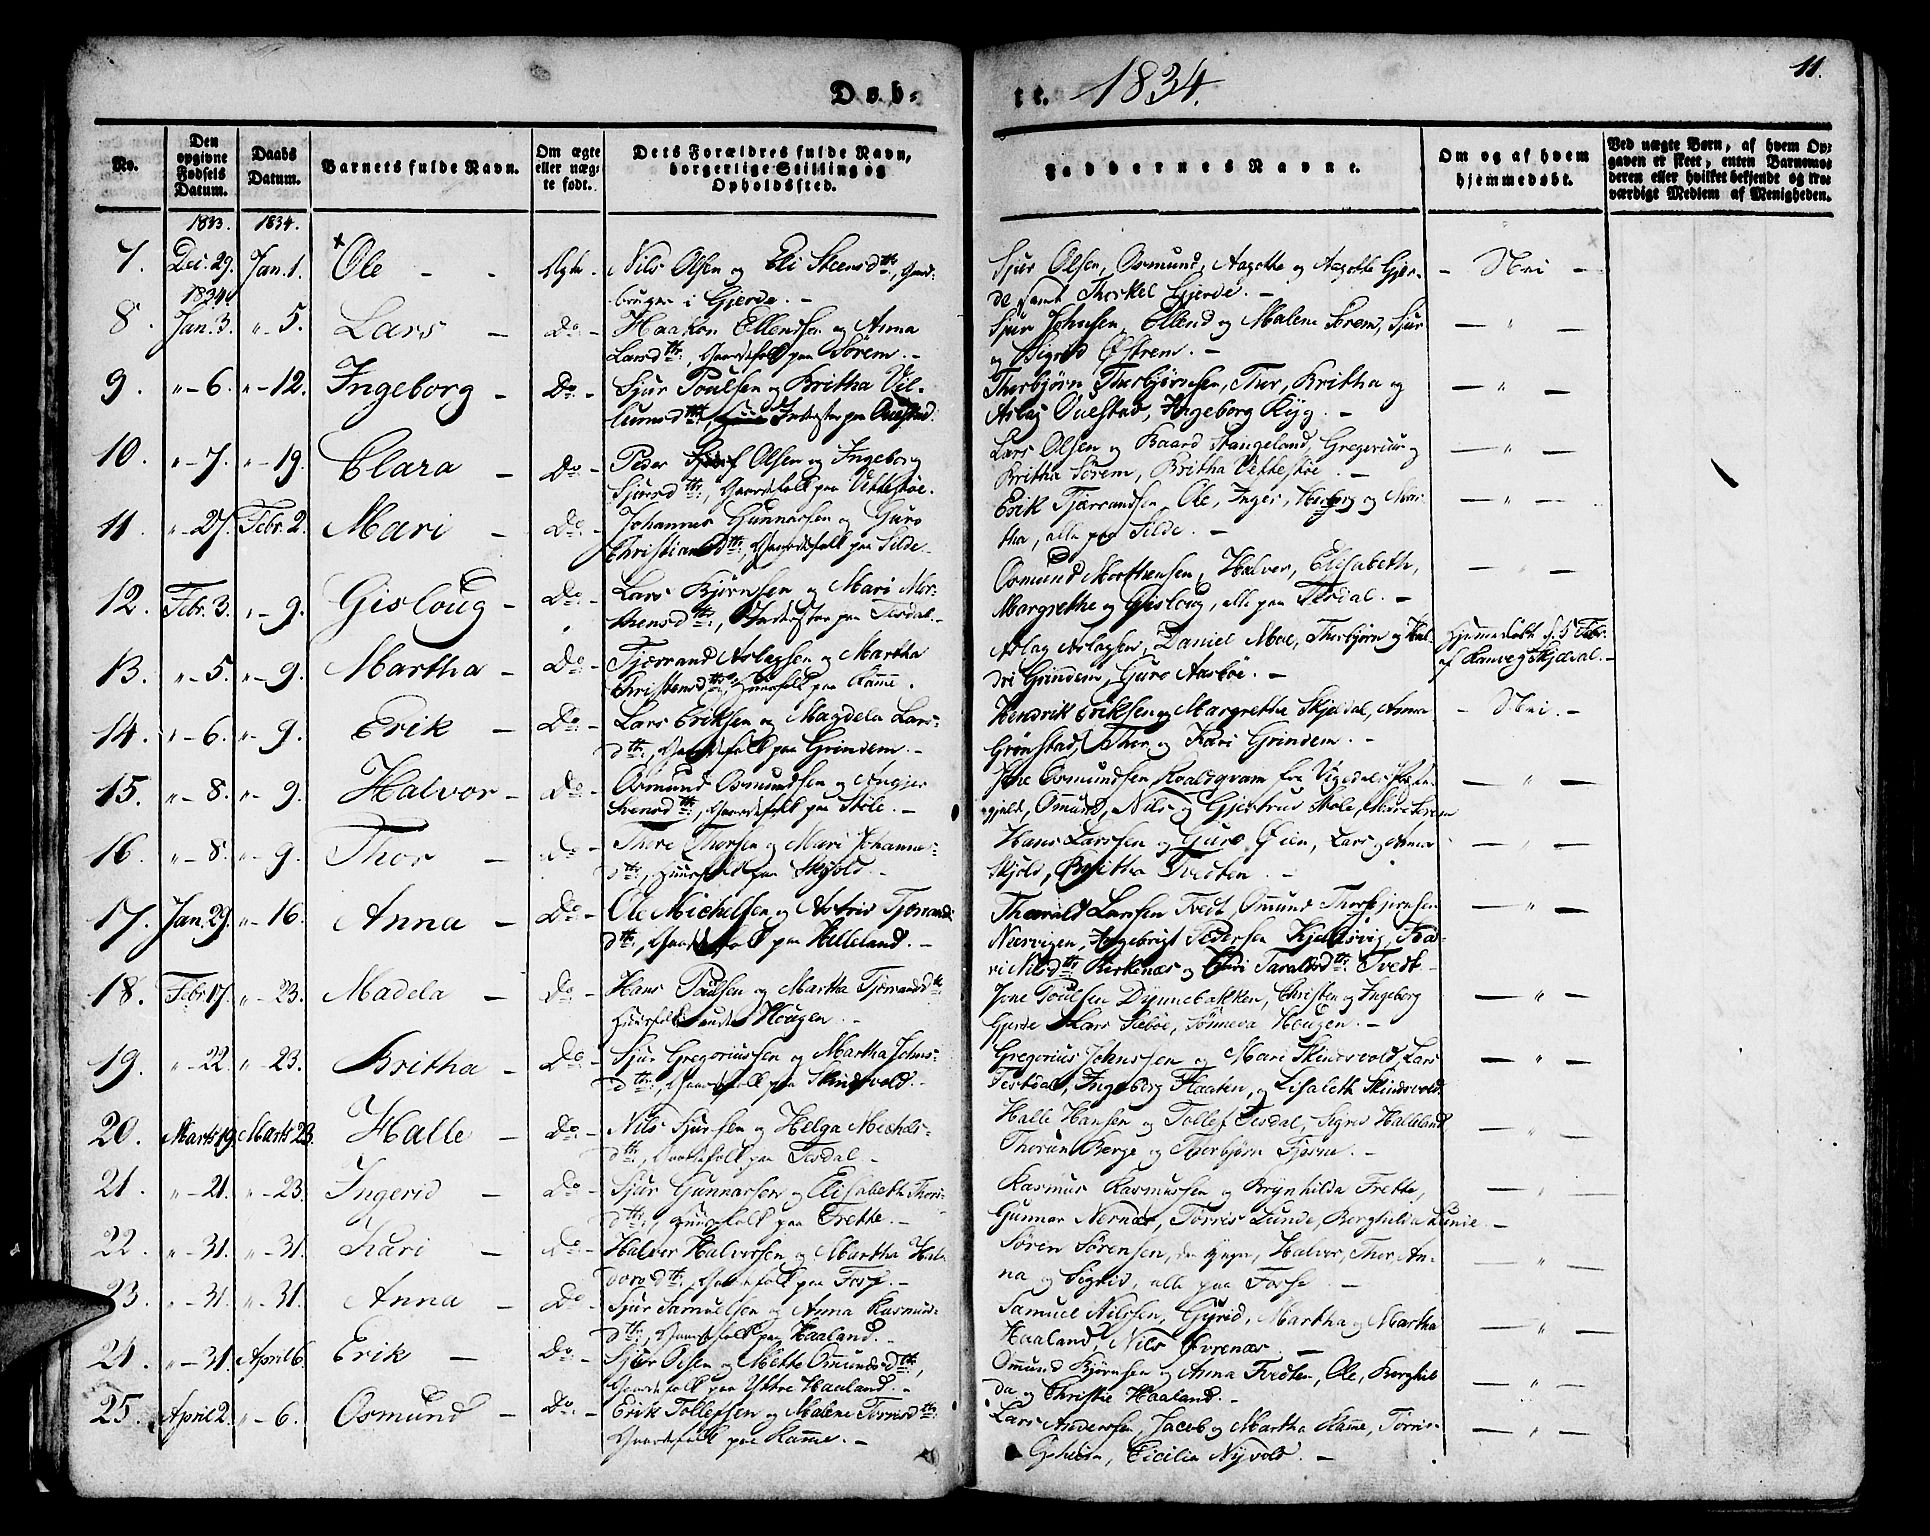 Døb-
te. 1834.
11.
No.
Den opgivne Fødsels Datum.
Daabs Datum.
Barnets fulde Navn.
Om ægte eller uægte født.
Dets Forældres fulde Navn, borgerlige Stilling og Opholdssted.
Faddernes Navne.
Om og af hvem hjemmedøbt.
Ved uægte Børn, af hvem Opgaven er skeet, enten Barnemoderen eller hvilket bekjendt og troværdigt Medlem af Menigheden.
1833. 1834.
7. Dec. 29. Jan. 1. Ole - - Ægte. Nils Olsen og Eli Steensdtr:, Gaard-
brugere i Gjerde. -
Sjur Olsen, Osmund, Aagothe og Aagothe Gjer- - Nei -
de samt Thorkel Gjerde. -
1834.
8. Jan. 3. " - 5. Lars - Do - Haakon Ellendsen og Anna
Larsdtr:, Gaardfolk paa Sørem. -
Sjur Johnsen, Ellend og Malene Sørem, Sjur - " -
og Sigrid Østrem. -
9. " - 6. " - 12. Ingeborg - Do - Sjur Poulsen og Britha Vil-
lumsdtr:, Inderster paa Ouestad.
Thorbjørn Thorbjørnsen, Thor, Britha og - " -
Aslag Ouestad, Ingeborg Ryg. -
10. " - 7. " - 19. Clara - Do - Peder Olsen og Ingeborg
Sjursdtr:, Gaardfolk paa Vettestøe.
Lars Olsen og Baard Stangeland, Gregerius og - " -
Britha Sørem, Britha Vettestøe -
11. " - 27. Febr. 2. Mari - Do - Johannes Gunnarsen og Guro
Christiansdtr:, Gaardfolk paa Silde -
Erik Tjærrandsen, Ole, Inger, og Mar- - " -
tha, alle paa Silde. -
12. Febr. 3. " - 9. Gisloug - Do - Lars Bjørnsen og Mari Mor-
thensdtr:, Inderster paa Tesdal. -
Osmund Morthensen, Halver, Elisabeth, - " -
Margrethe og Gisloug, alle paa Tesdal. -
13. " - 5. " - 9. Martha - Do - Tjærrand Aslagsen og Martha
Christensdtr:, Huusfolk paa Ramme.
Aslag Aslagsen, Daniel Moe, Thorbjørn og Hal- Hjemmedøbt d. 5 Febr.
dri Grindem, Guro Aasbøe. - af Ranveg Skjeldal. -
14. " - 6. " - 9. Erik - Do - Lars Eriksen og Magdela Lars-
dtr:, Gaardfolk paa Grindem. -
Hendrik Eriksen og Margrethe Skjeldal, Anna - Nei. -
Grønstad, Thor og Kari Grindem. -
15. " - 8. " - 9. Halvor - Do - Osmund Osmundsen og
Svensdtr:, Gaardfolk paa Støle. -
Jone Osmundsen Roaldqvam fra - " -
gjeld, Omund, Nils og Gjertrud Støle, Sørem
16. " - 8. " - 9. Thor - Do - Thore Thorsen og Mari Johannes-
dtr:, Huusfolk paa Skjold. -
Hans Larssen og Guro Øien, Lars og Anna - " -
Skjold, Britha Tvedten. -
17. Jan. 29. " - 16. Anna - Do - Ole Michelsen og Astrid Tjærrands-
dtr:, Gaardfolk paa Helleland. -
Thorvald Larsen Tvedt, Omund Thorbjørnsen - " -
Nærvigen, Ingebrigt Pedersen Kjellesvig, Ka-
ri Nilsdtr: Birkenæs og Guri Taraldsdtr: Tvedt -
18. Febr. 17. " - 23. Madela - Do - Hans Poulsen og Martha Tjærrandsdtr:
Huusfolk under Hougen. -
Jone Poulsen Dynnebakken, Christen og Ingeborg - " -
Gjerde, Lars Sæbøe, Sønneva Hougen. -
19. " - 22. " - 23. Britha - Do - Sjur Gregoriussen og Martha Johns-
dtr:, Gaardfolk paa Skindsvold. -
Gregorius Johnssen og Mari Skindsvold, Lars - " -
Tesdal, Ingeborg Flaaten, og Lisabeth Skindsvold.
20. Marts 19. Marts 23. Halle - Do - Nils Sjursen og Helga Michels-
dtr:, Gaardfolk paa Tesdal -
Halle Hansen og Tollef Tesdal, Sigrid Halleland - " -
Thorun Berge og Thorbjørn Fjøsne. -
21. " - 21. " - 23. Ingerid - Do - Sjur Gunnarsen og Elisabeth Thors-
dtr:, Huusfolk paa Frette. -
Rasmus Rasmussen og Brynhilda Frette, - " -
Gunnar Nernæs, Torris Lunde, Borghilda Lunde. -
22. " - 31. " - 31. Kari - Do - Halver Halversen og Martha Hal-
dorsdtr:, Gaardfolk paa Forss. -
Søren Sørensen, den yngre, Halver, Thor, An- - " -
na og Sigrid, alle paa Forse. -
23. " - 31. " - 31. Anna - Do - Sjur Samuelsen og Anna Rasmus-
dtr:, Gaardfolk paa Haaland. -
Samuel Nilssen, Gyrid, Martha og Martha - " -
Haaland, Nils Øvrenæs. -
24. " - 31. April 6. Erik - Do - Sjur Olsen og Mette Omundsdtr:,
Gaardfolk paa Yttre Haaland. -
Omund Bjørnsen og Anna Tvedten, Ole, Borghil- - " -
da og Christie Haaland. -
25. April 2. " - 6. Osmund - Do - Erik Tollefsen og Malene Torrisdtr:
Gaardfolk paa Ramme. -
Lars Anderssen, Jacob og Martha Ramme, Torris - " -
Cicilia Nyvold. -